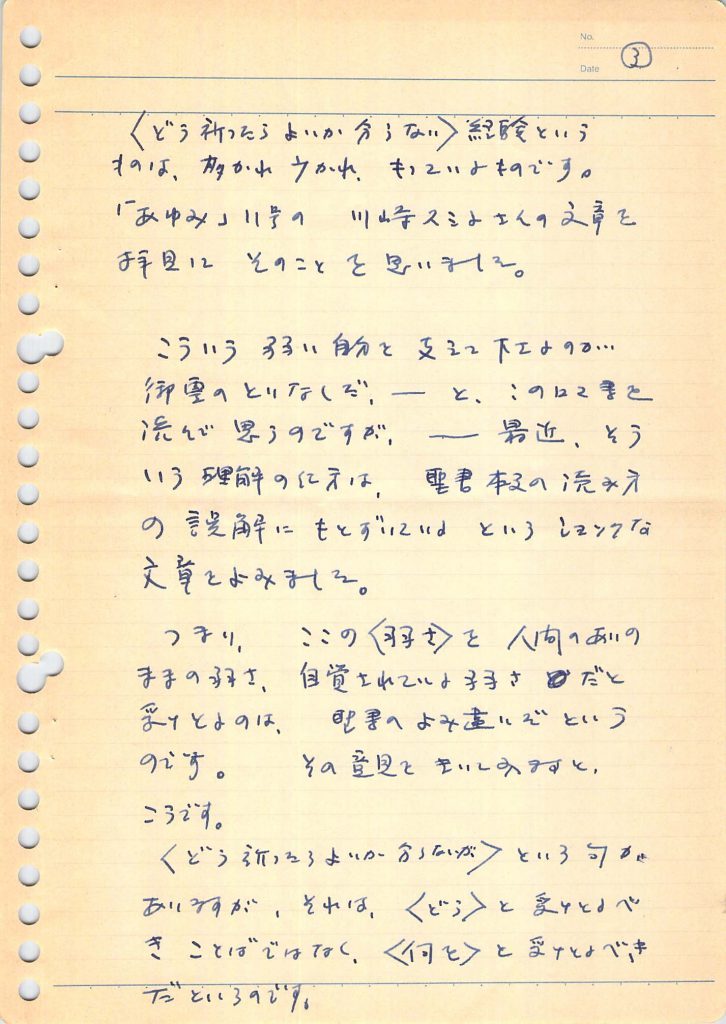 No.
Date
3
〈どう祈ったらよいか分らない〉経験という
ものは、多かれ少かれ、もっているものです。
「あゆみ」11号の 川崎スミよさんの文章を
拝見し そのことを思いました。
こういう弱い自分を支えて下さるのが…
御霊のとりなしだ、── と、このロマ書を
読んで思うのですが、── 最近、そう
いう理解の仕方は、聖書本文の読み方
の誤解にもとずいている という ショックな
文章をよみました。
つまり、 ここの〈弱さ〉を 人間のありの
ままの弱さ、自覚されている弱さ だと
受けとるのは、 聖書のよみ違いだという
のです。 その意見を きいてみますと、
こうです。
〈どう祈ったらよいか分らないが〉という句が
ありますが、それは、〈どう〉と受けとるべ
き ことばではなく、〈何を〉と受けとるべき
だというのです。